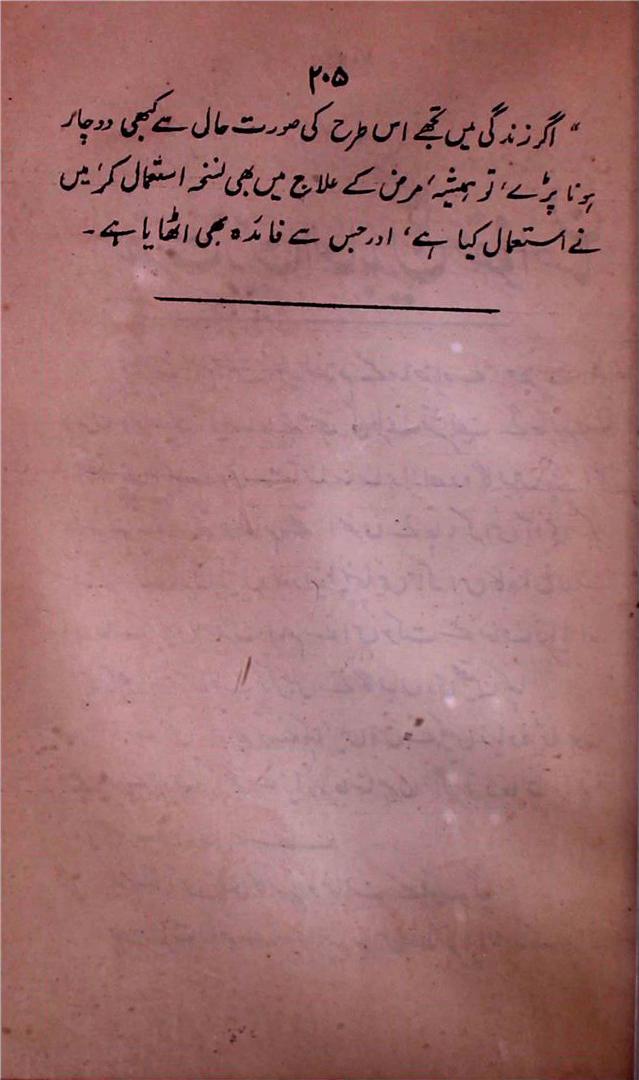 ۲۰۵
" اگر زندگی میں تجھے اس طرح کی صورت حالی سے کبھی دوچار
ہونا پڑے، تو ہمیشہ، مرض کے علاج میں بھی نسخہ استعمال کر، میں
نے استعمال کیا ہے، اور جس سے فائدہ بھی اٹھایا ہے۔